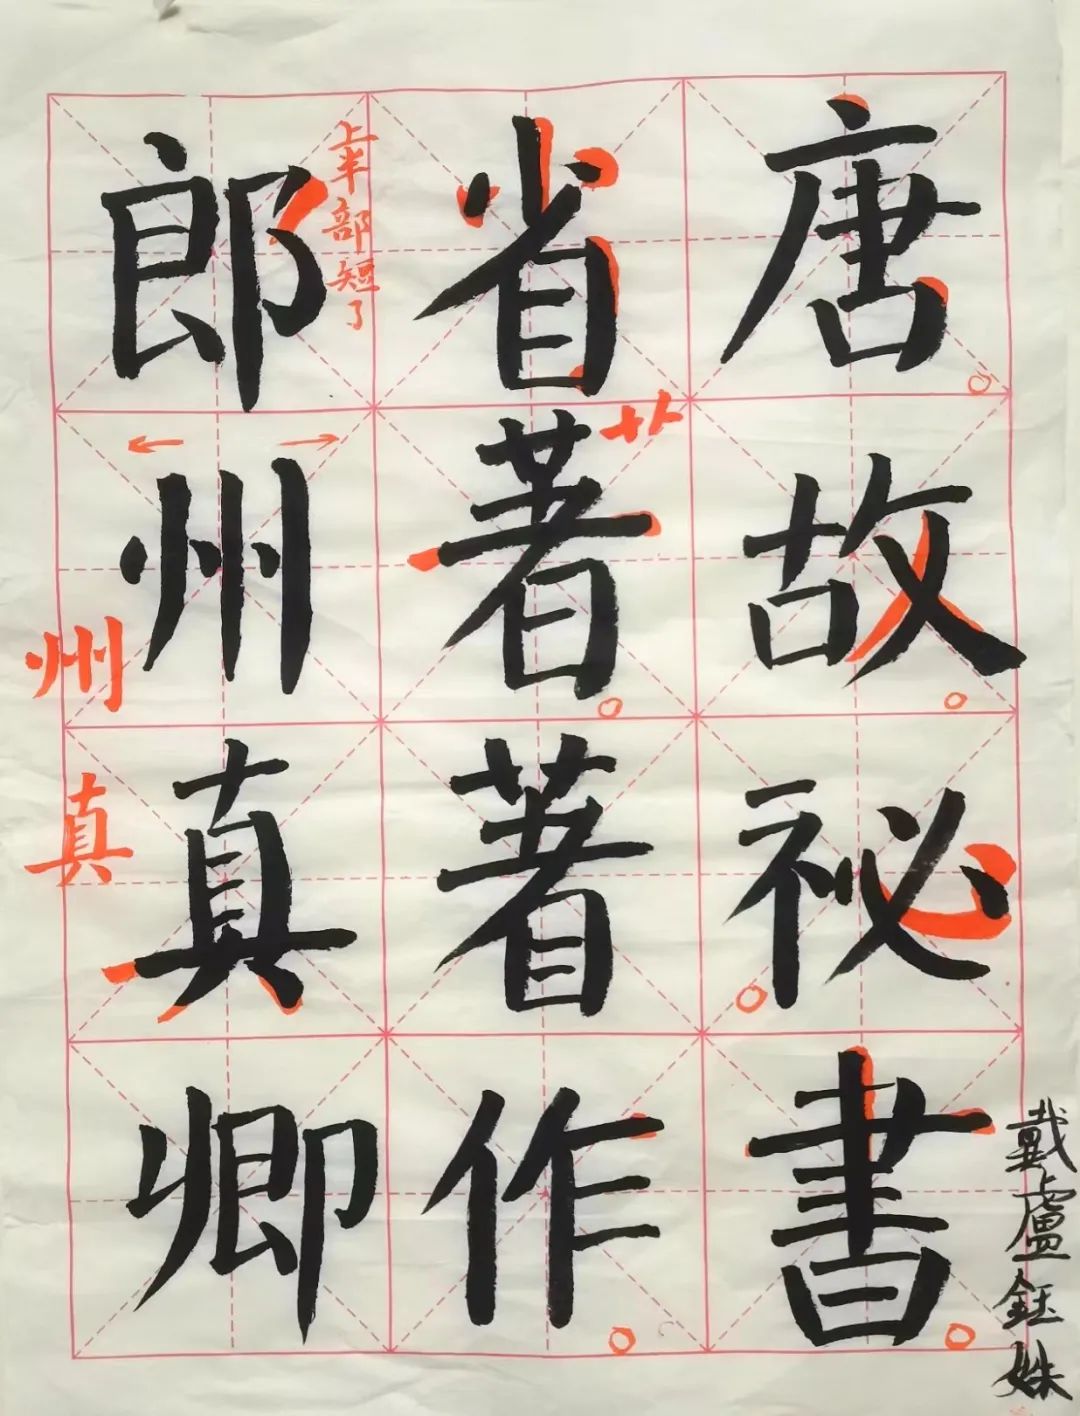 唐故祕書
省著著作
郎州真卿
上半部短了
艹
州
真
戴盧鈺姝